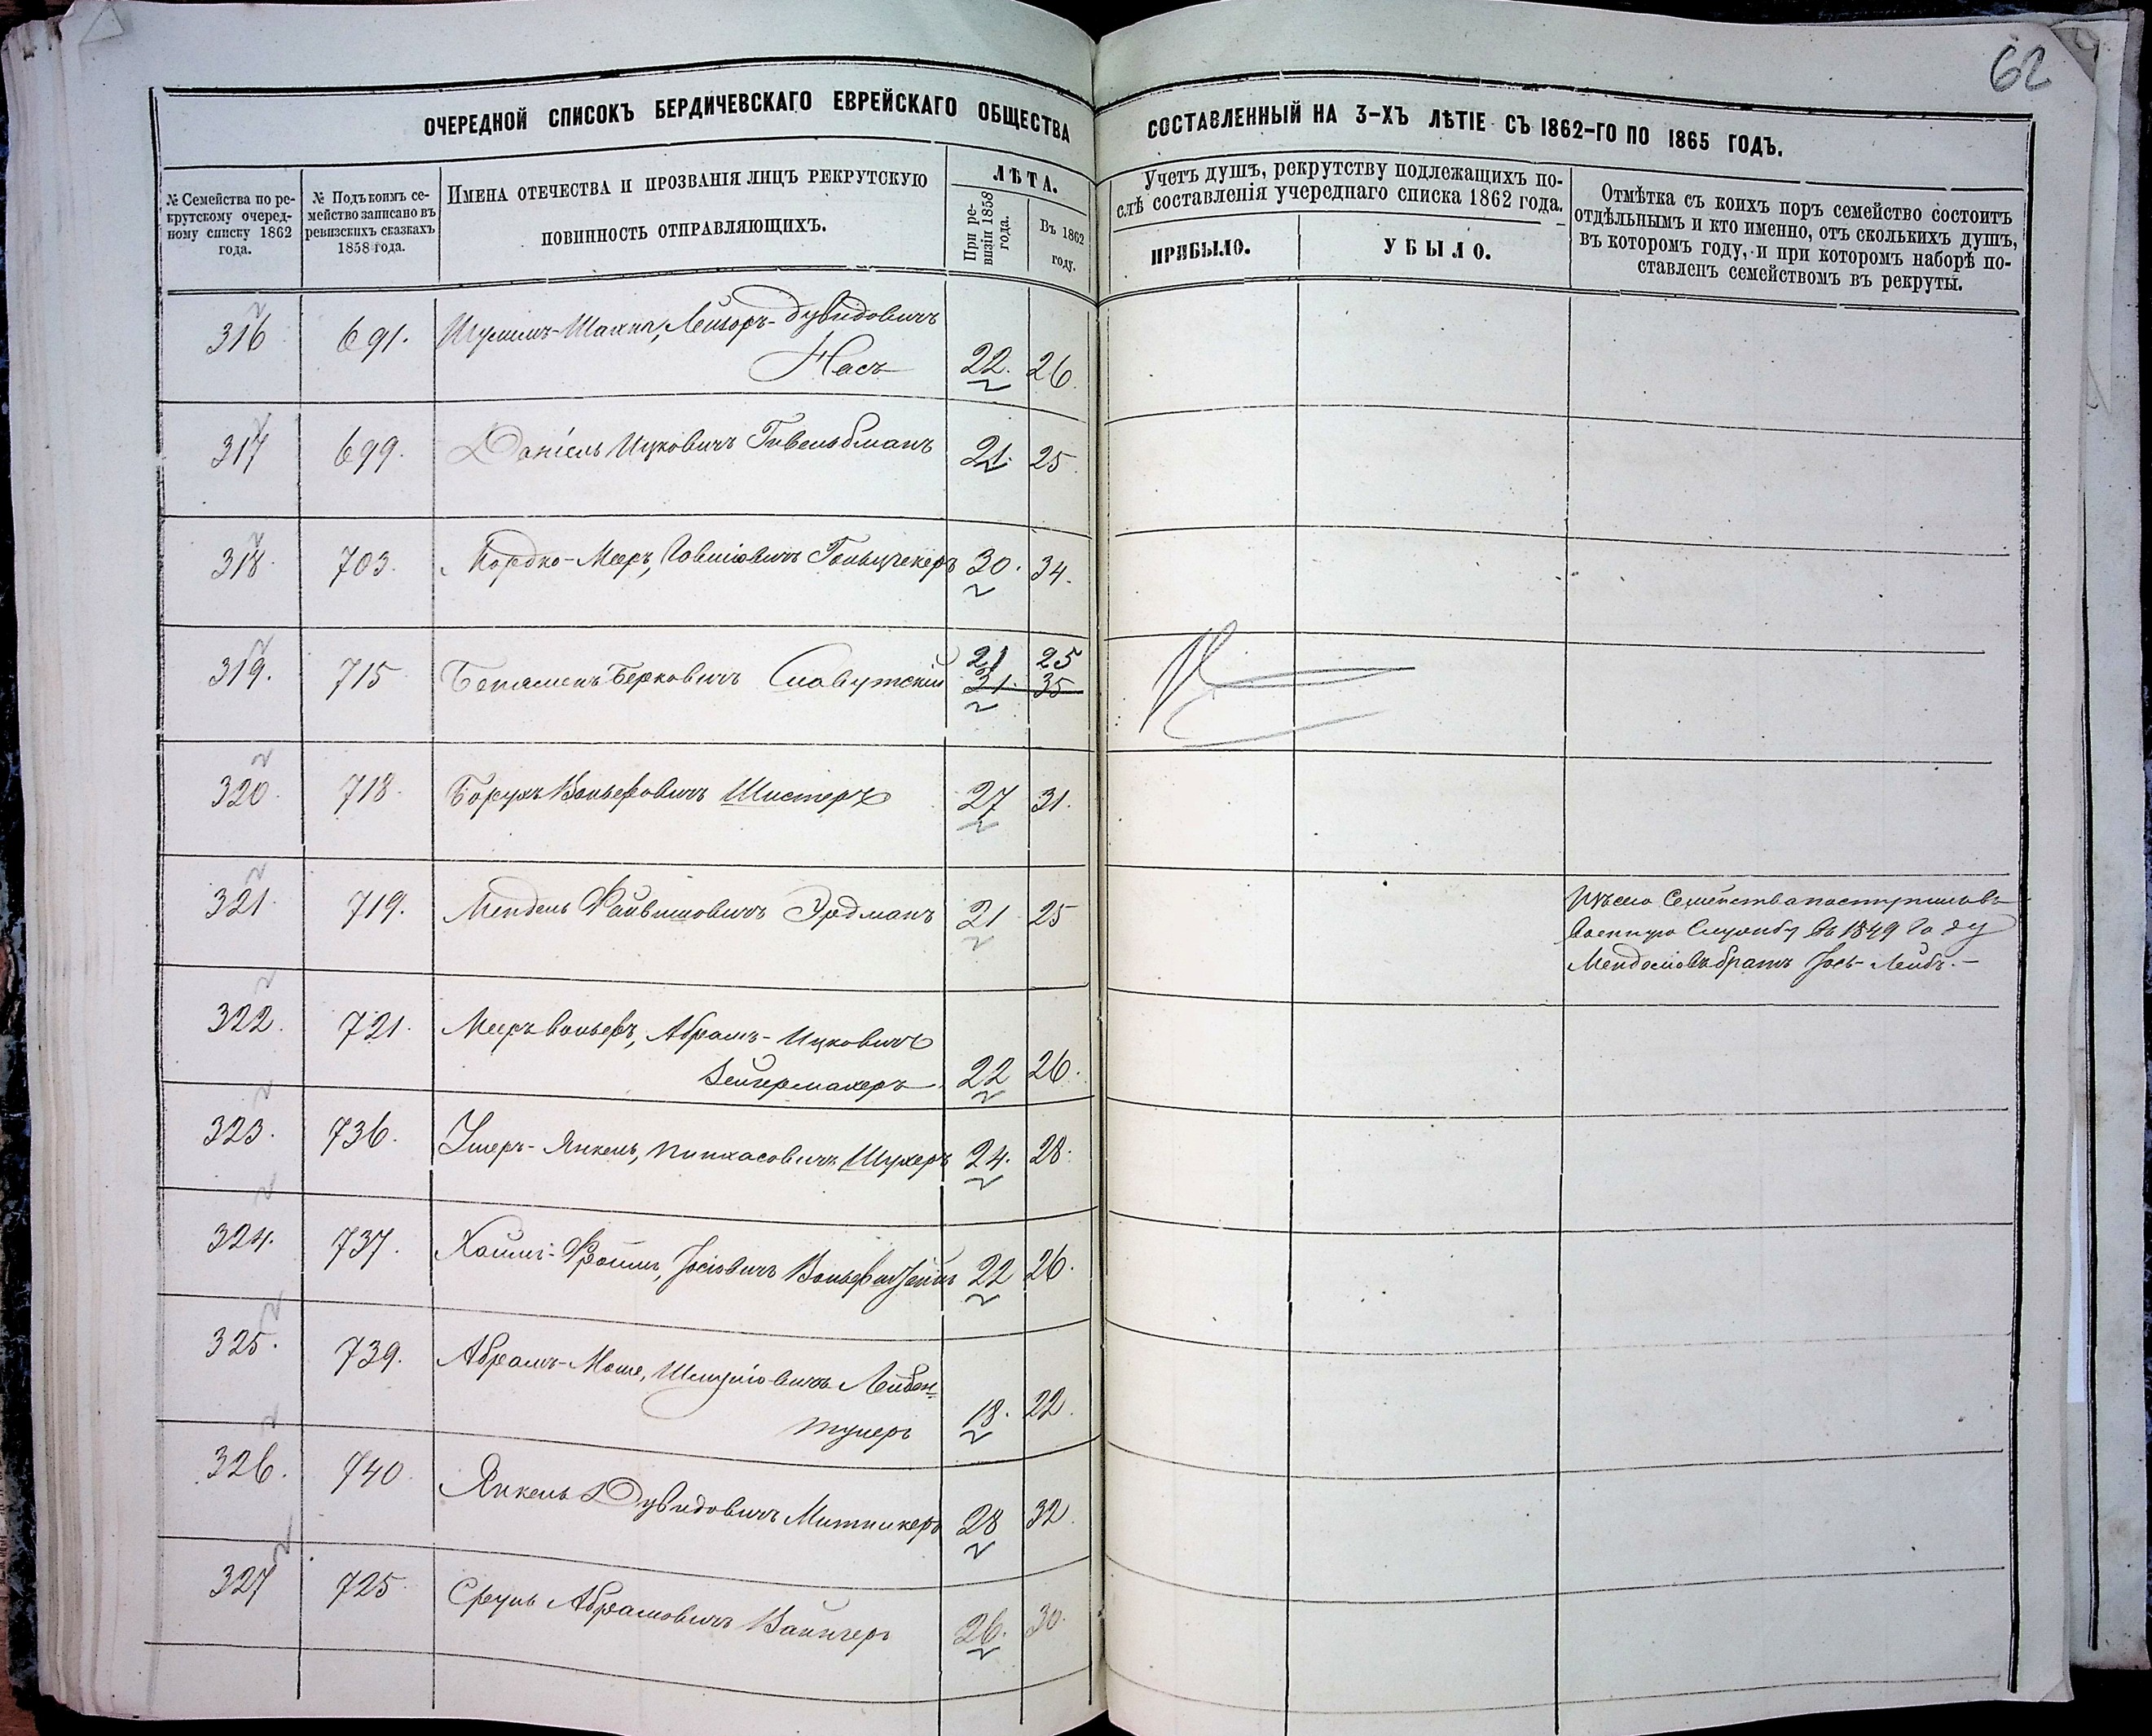 62
ОЧЕРЕДНОЙ СПИСОКЪ БЕРДИЧЕВСКАГО ЕВРЕЙСКАГО ОБЩЕСТВА СОСТАВЛЕННЫЙ НА 3-ХЪ ЛѢТІЕ СЪ 1862-ГО ПО 1865 ГОДЪ.
№ Семейства по ре-
крутскому очеред-
ному списку 1862
года.
№ Подъ коимъ се-
мейство записано въ
ревизскихъ сказкахъ
1858 года.
ИМЕНА ОТЕЧЕСТВА И ПРОЗВАНІЯ ЛИЦЪ РЕКРУТСКУЮ
ПОВИННОСТЬ ОТПРАВЛЯЮЩИХЪ.
ЛѢТА.
При ре-
визіи 1858
года.
Въ 1862
году.
Учетъ душъ, рекрутству подлежащихъ по-
слѣ составленія учереднаго списка 1862 года.
ПРИБЫЛО.
УБЫЛО.
Отмѣтка съ коихъ поръ семейство состоитъ
отдѣльнымъ и кто именно, отъ сколькихъ душъ,
въ котором году, и при котором наборѣ по-
ставленъ семейством въ рекруты.
316 691. Шулимъ-Шахна, Лейзоръ-Дувидовичъ
Насъ 22. 26.
317 699. Даніель Ицковичъ Гивельбманъ 21. 25.
318. 703. Мордко-Меръ, Іовшіовичъ Гольцгекеръ 30. 34.
21 25
319. 715 Беняменъ Берковичъ Славутскій 31. 35
320. 718. Борухъ Вольфовичъ Шистеръ 27 31.
321. 719. Мендель Файвишовичъ Эрдманъ 21 25
Изъ сего Семейства поступилъ въ
Военную Службу въ 1849 Году
Менделіовъ братъ Іось-Лейбъ.
322. 721. Меръ Вольфъ, Абрамъ-Ицковичъ
Зейгермахеръ 22 26.
323. 736. Ушеръ-Янкель, Пинхасовичъ Шухеръ 24. 28.
324. 737. Хаимъ-Фроимъ, Іосіовичъ 22 26.
325. 739. Абрамъ-Моше, Шмуліовичъ Лейбен=
тулеръ 18. 22.
326. 740. Янкель Дувидовичъ Митникеръ 28 32.
327 725 Сруль Абрамовичъ Вайнгеръ 26. 30.